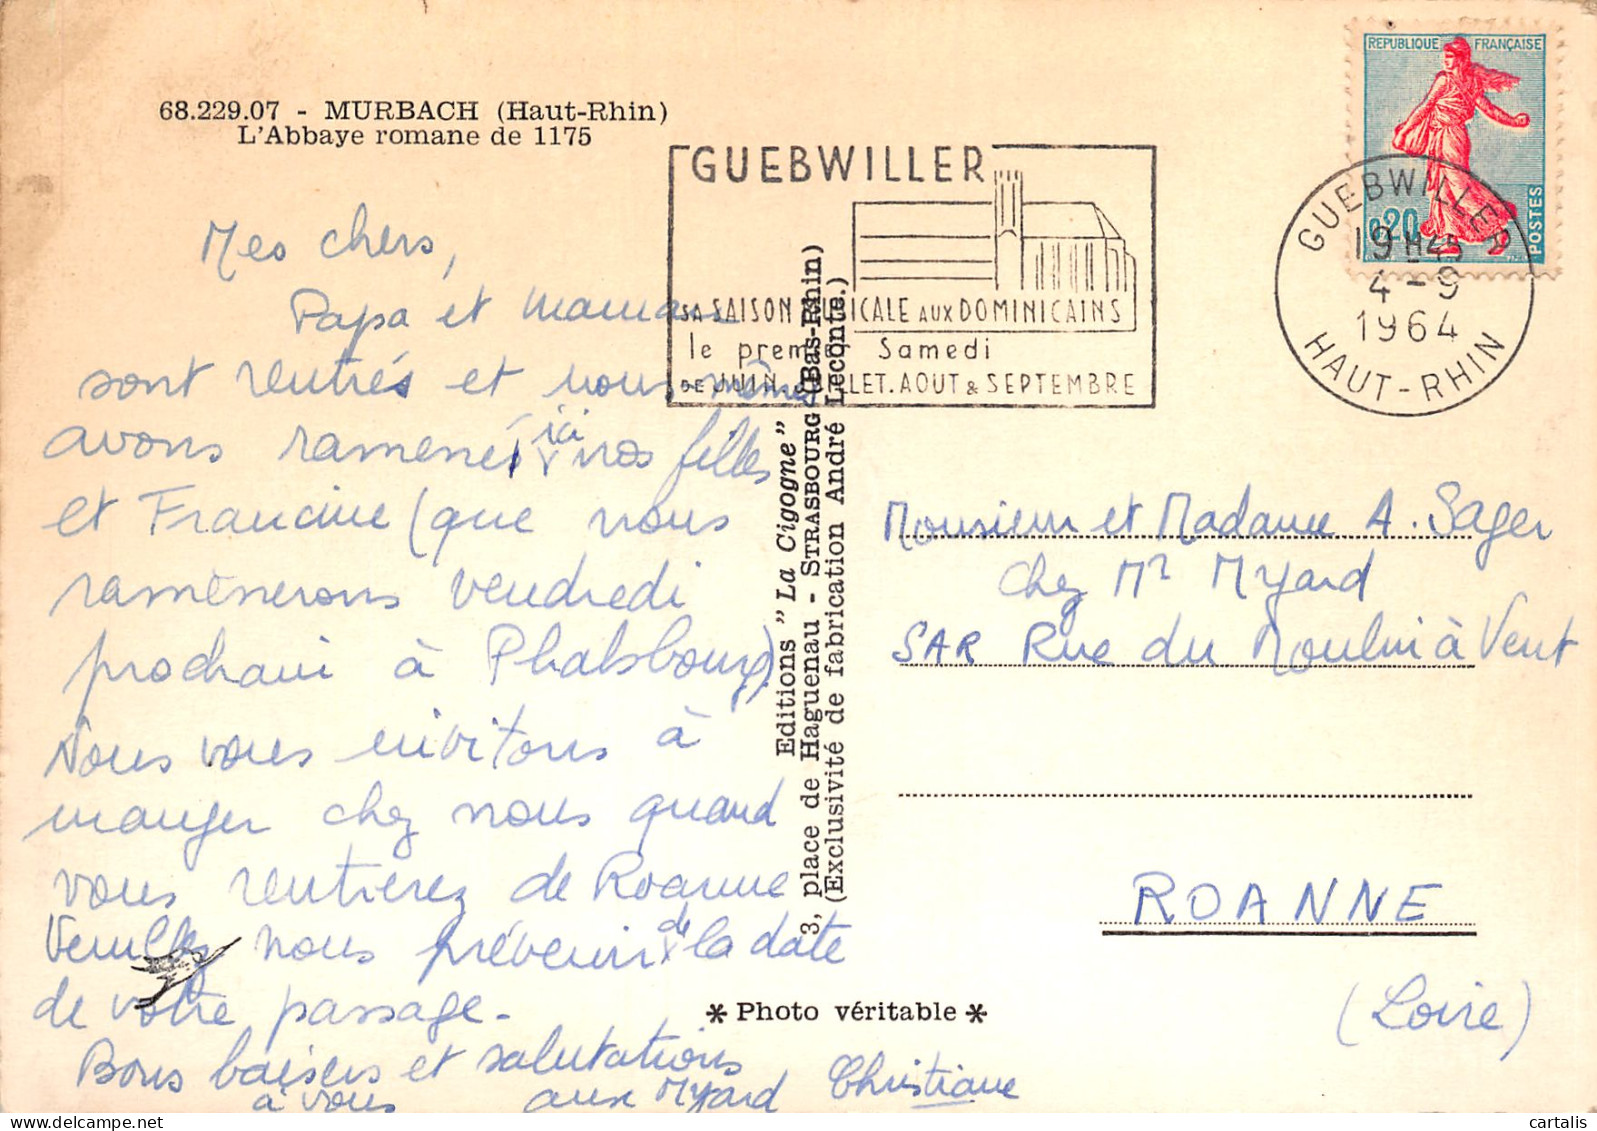 68.229.07 - MURBACH (Haut-Rhin)
L'Abbaye romane de 1175
GUEBWILLER
SA SAISON MUSICALE AUX DOMINICAINS
le premier Samedi
DE JUIN JUILLET. AOUT & SEPTEMBRE
REPUBLIQUE FRANÇAISE
0,20
POSTES
GUEBWILLER
19H45
4-9
1964
HAUT-RHIN
Mes chers,
Papa et maman
sont rentrés et nous mêmes
avons ramené ici nos filles
et Francine (que nous
ramènerons vendredi
prochain à Phalsbourg)
Nous vous invitons à
manger chez nous quand
vous rentrerez de Roanne
Veuillez nous prévenir de la date
de votre passage.
Bons baisers et salutations
à vous aux Myard Christiane
Editions "La Cigogne"
3, place de Haguenau - STRASBOURG (Bas-Rhin)
(Exclusivité de fabrication André Leconte.)
Monsieur et Madame A. Sager
chez Mr Myard
SAR Rue du Moulin à Vent
ROANNE
(Loire)
* Photo véritable *
cartalis